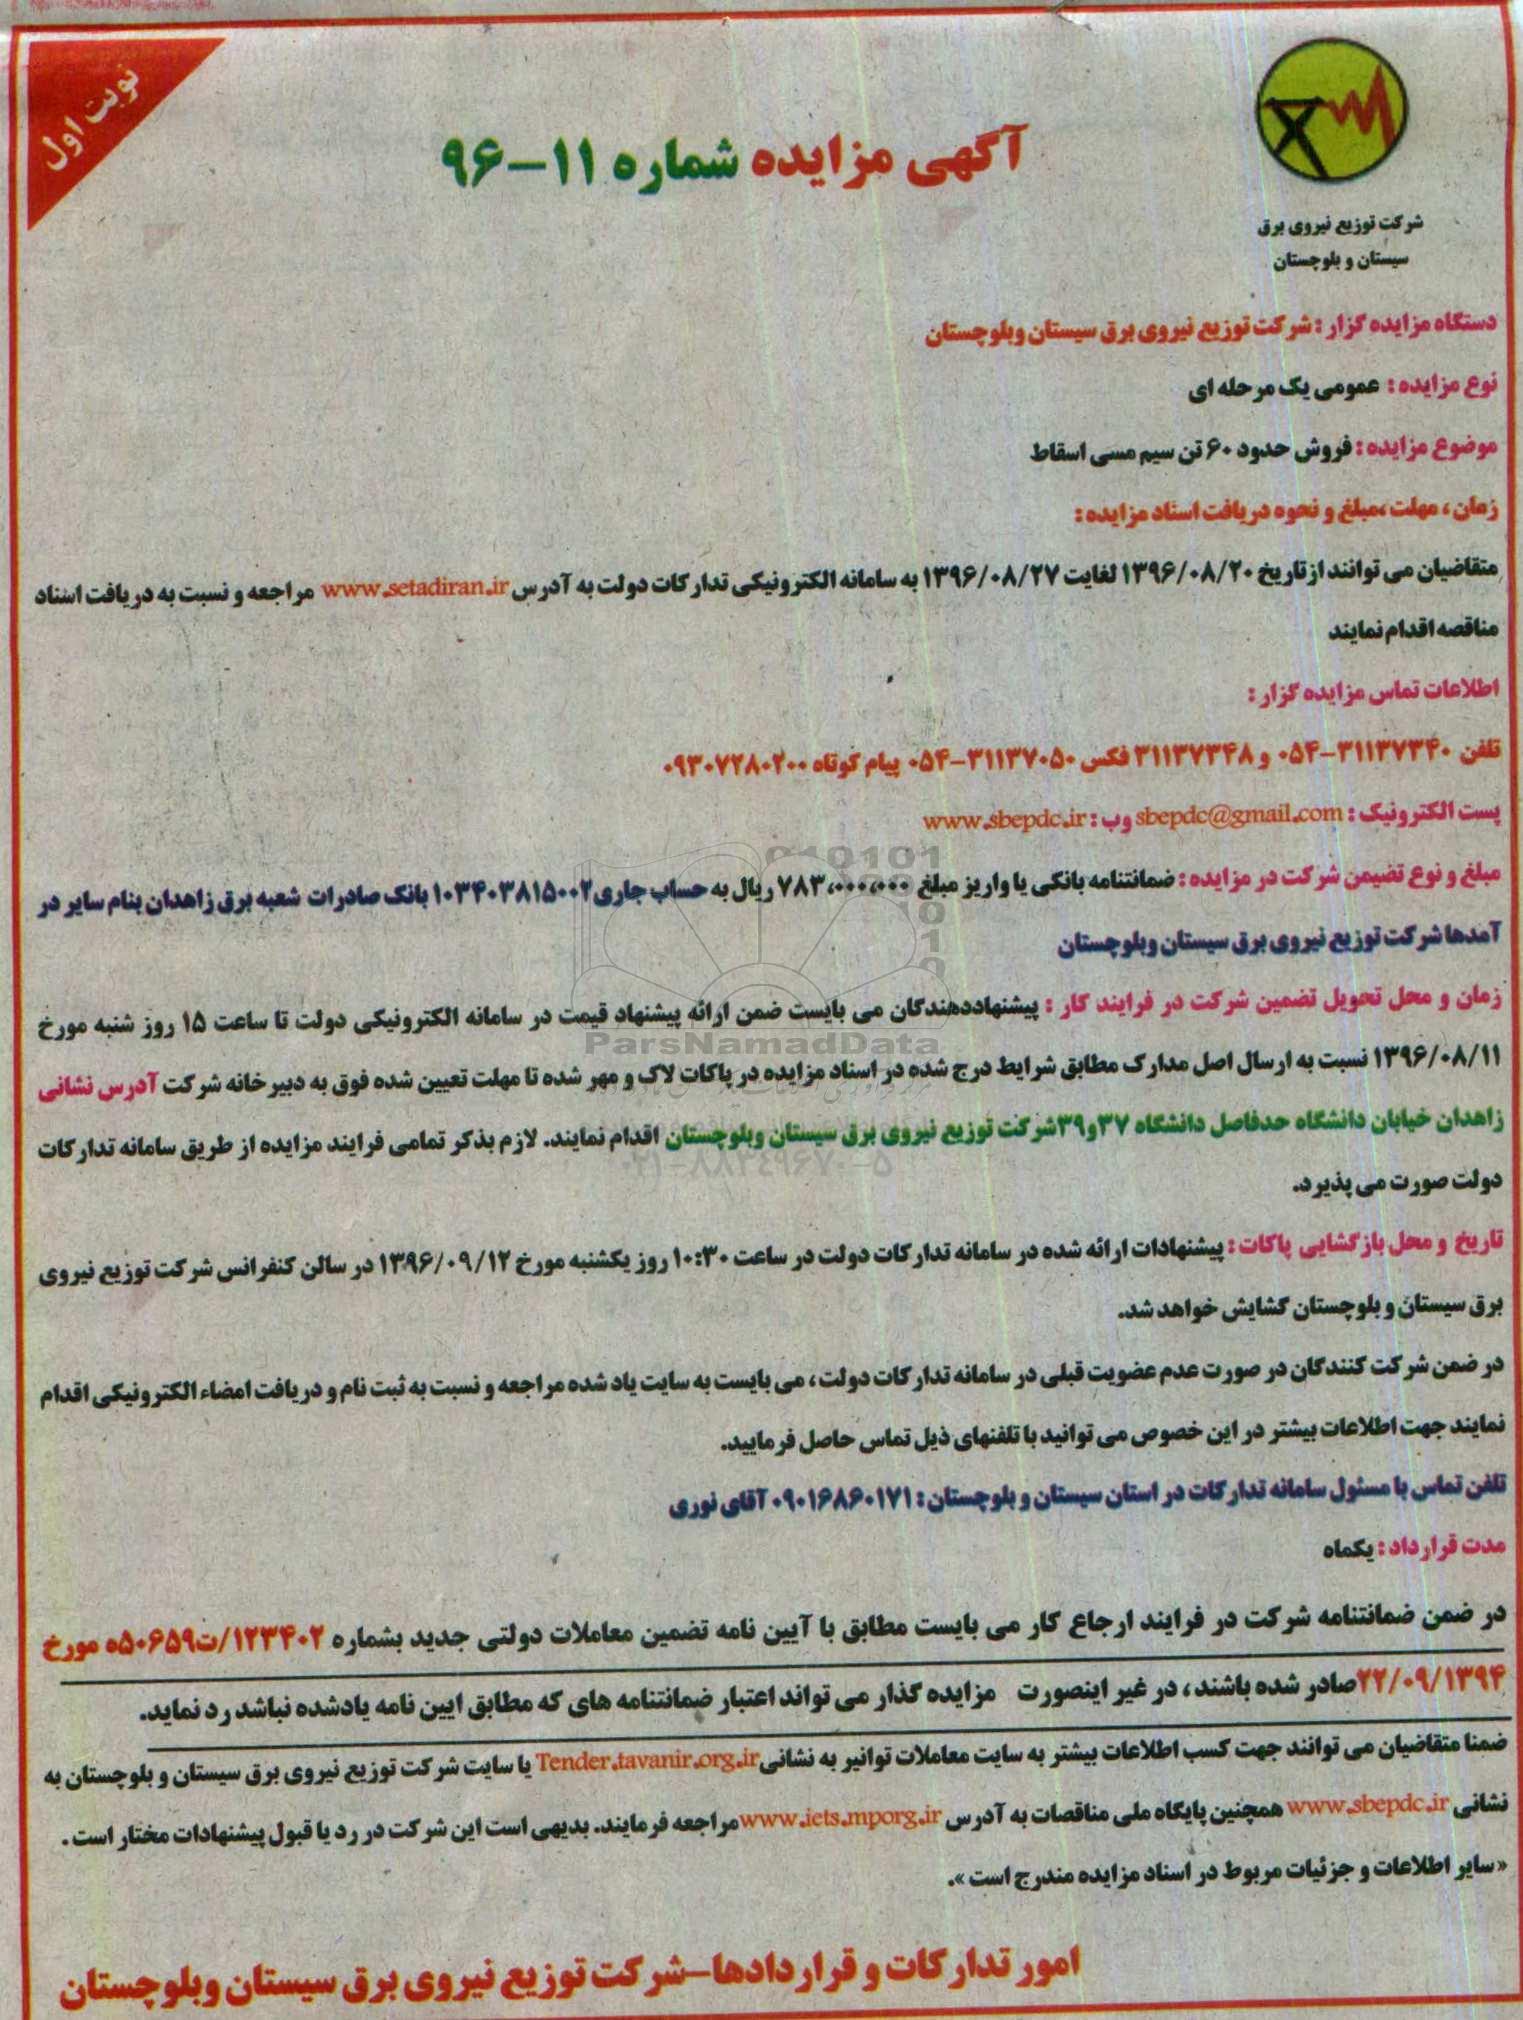 نوبت اول
آگهی مزایده شماره ۱۱-۹۶
شرکت توزیع نیروی برق
سیستان و بلوچستان
دستگاه مزایده گزار : شرکت توزیع نیروی برق سیستان وبلوچستان
نوع مزایده : عمومی یک مرحله ای
موضوع مزایده : فروش حدود ۶۰ تن سیم مسی اسقاط
زمان ، مهلت ،مبلغ و نحوه دریافت اسناد مزایده :
متقاضیان می توانند ازتاریخ ۱۳۹۶/۰۸/۲۰ لغایت ۱۳۹۶/۰۸/۲۷ به سامانه الکترونیکی تدارکات دولت به آدرس www.setadiran.ir مراجعه و نسبت به دریافت اسناد
مناقصه اقدام نمایند
اطلاعات تماس مزایده گزار :
تلفن ۳۱۱۳۷۳۴۰-۰۵۴ و ۳۱۱۳۷۳۴۸ فکس ۳۱۱۳۷۰۵۰-۰۵۴ پیام کوتاه ۰۹۳۰۷۲۸۰۲۰۰
پست الکترونیک : sbepdc@gmail.com وب : www.sbepdc.ir
مبلغ و نوع تضیمن شرکت در مزایده : ضمانتنامه بانکی یا واریز مبلغ ۷۸۳،۰۰۰،۰۰۰ ریال به حساب جاری۱۰۳۴۰۳۸۱۵۰۰۲ بانک صادرات شعبه برق زاهدان بنام سایر در
آمدها شرکت توزیع نیروی برق سیستان وبلوچستان
زمان و محل تحویل تضمین شرکت در فرایند کار : پیشنهاددهندگان می بایست ضمن ارائه پیشنهاد قیمت در سامانه الکترونیکی دولت تا ساعت ۱۵ روز شنبه مورخ
۱۳۹۶/۰۸/۱۱ نسبت به ارسال اصل مدارک مطابق شرایط درج شده در اسناد مزایده در پاکات لاک و مهر شده تا مهلت تعیین شده فوق به دبیرخانه شرکت آدرس نشانی
زاهدان خیابان دانشگاه حدفاصل دانشگاه ۳۷و۳۹شرکت توزیع نیروی برق سیستان وبلوچستان اقدام نمایند. لازم بذکر تمامی فرایند مزایده از طریق سامانه تدارکات
دولت صورت می پذیرد.
تاریخ و محل بازگشایی پاکات : پیشنهادات ارائه شده در سامانه تدارکات دولت در ساعت ۱۰:۳۰ روز یکشنبه مورخ ۱۳۹۶/۰۹/۱۲ در سالن کنفرانس شرکت توزیع نیروی
برق سیستان و بلوچستان گشایش خواهد شد.
در ضمن شرکت کنندگان در صورت عدم عضویت قبلی در سامانه تدارکات دولت ، می بایست به سایت یاد شده مراجعه و نسبت به ثبت نام و دریافت امضاء الکترونیکی اقدام
نمایند جهت اطلاعات بیشتر در این خصوص می توانید با تلفنهای ذیل تماس حاصل فرمایید.
تلفن تماس با مسئول سامانه تدارکات در استان سیستان و بلوچستان : ۰۹۰۱۶۸۶۰۱۷۱ آقای نوری
مدت قرارداد : یکماه
در ضمن ضمانتنامه شرکت در فرایند ارجاع کار می بایست مطابق با آیین نامه تضمین معاملات دولتی جدید بشماره ۱۲۳۴۰۲/ت۵۰۶۵۹ه مورخ
۲۲/۰۹/۱۳۹۴صادر شده باشند ، در غیر اینصورت مزایده گذار می تواند اعتبار ضمانتنامه های که مطابق ایین نامه یادشده نباشد رد نماید.
ضمنا متقاضیان می توانند جهت کسب اطلاعات بیشتر به سایت معاملات توانیر به نشانی Tender.tavanir.org.ir یا سایت شرکت توزیع نیروی برق سیستان و بلوچستان به
نشانی www.sbepdc.ir همچنین پایگاه ملی مناقصات به آدرس www.iets.mporg.ir مراجعه فرمایند. بدیهی است این شرکت در رد یا قبول پیشنهادات مختار است .
«سایر اطلاعات و جزئیات مربوط در اسناد مزایده مندرج است».
امور تدارکات و قراردادها-شرکت توزیع نیروی برق سیستان وبلوچستان
ParsNamadData
۰۲۱-۸۸۳۴۹۶۷۰-۵